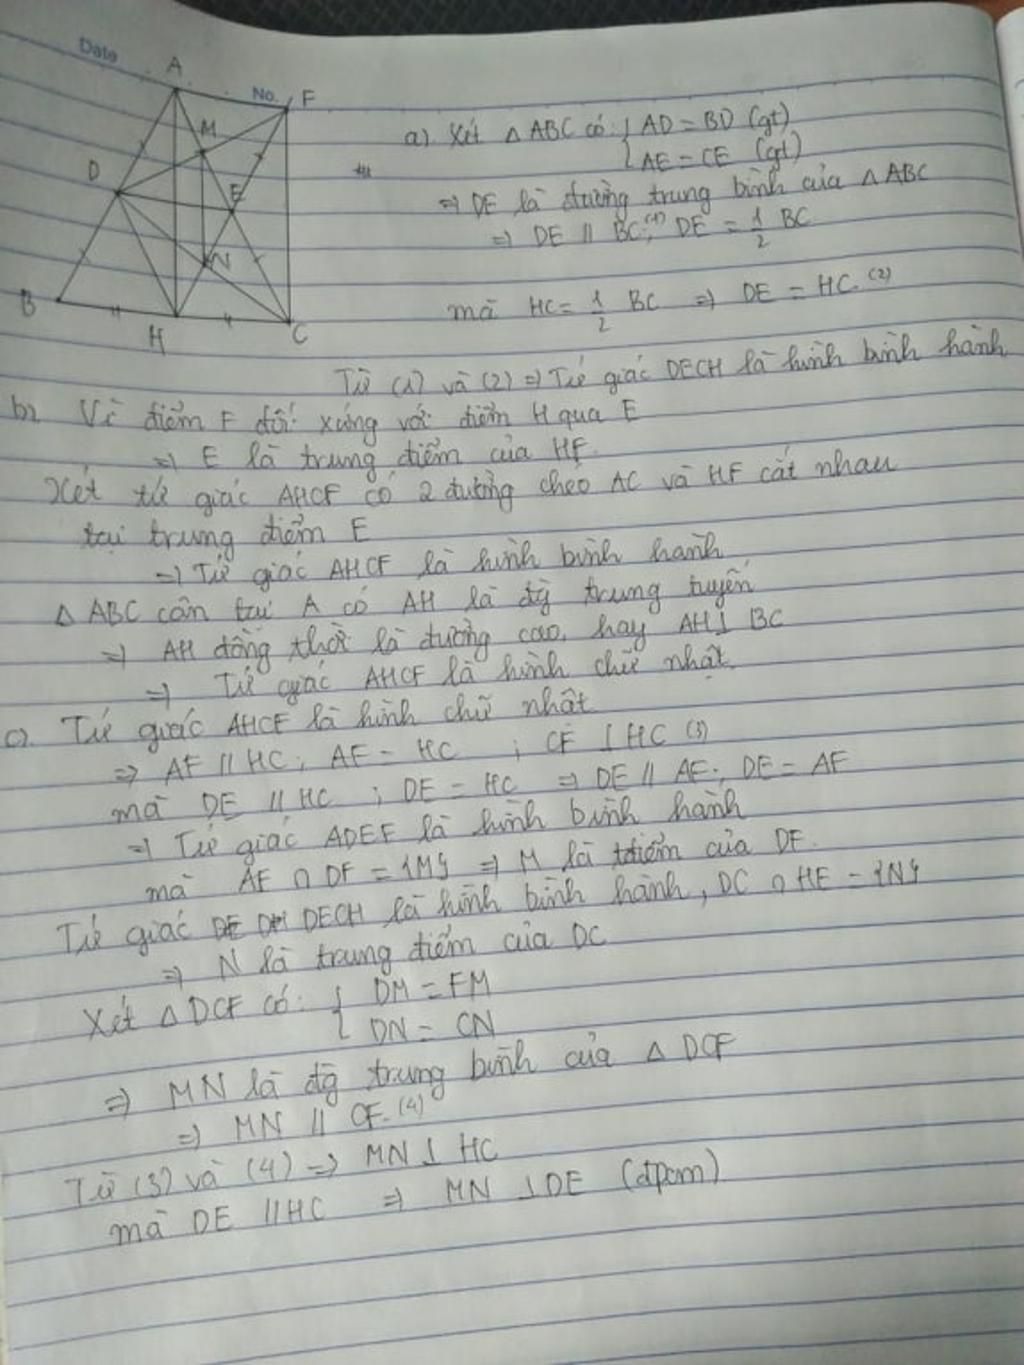 Date
No.
A
F
M
D
E
N
B
H
C
a). Xét △ ABC có: { AD = BD (gt)
AE = CE (gt)
=> DE là đường trung bình của △ ABC
=> DE // BC (1); DE = 1/2 BC
mà HC = 1/2 BC => DE = HC. (2)
Từ (1) và (2) => Tứ giác DECH là hình bình hành
b). Vì điểm F đối xứng với điểm H qua E
=> E là trung điểm của HF.
Xét tứ giác AHCF có 2 đường chéo AC và HF cắt nhau
tại trung điểm E
=> Tứ giác AHCF là hình bình hành
△ ABC cân tại A có AH là đg trung tuyến
=> AH đồng thời là đường cao. hay AH ⊥ BC
=> Tứ giác AHCF là hình chữ nhật.
c). Tứ giác AHCF là hình chữ nhật
=> AF // HC; AF = HC ; CF ⊥ HC (3)
mà DE // HC ; DE = HC => DE // AF; DE = AF
=> Tứ giác ADEF là hình bình hành
mà AE ∩ DF = {M} => M là tđiểm của DF.
Tứ giác DECH là hình bình hành, DC ∩ HE = {N}
=> N là trung điểm của DC
Xét △ DCF có: { DM = FM
DN = CN
=> MN là đg trung bình của △ DCF
=> MN // CF. (4)
Từ (3) và (4) => MN ⊥ HC
mà DE // HC => MN ⊥ DE (đpcm)